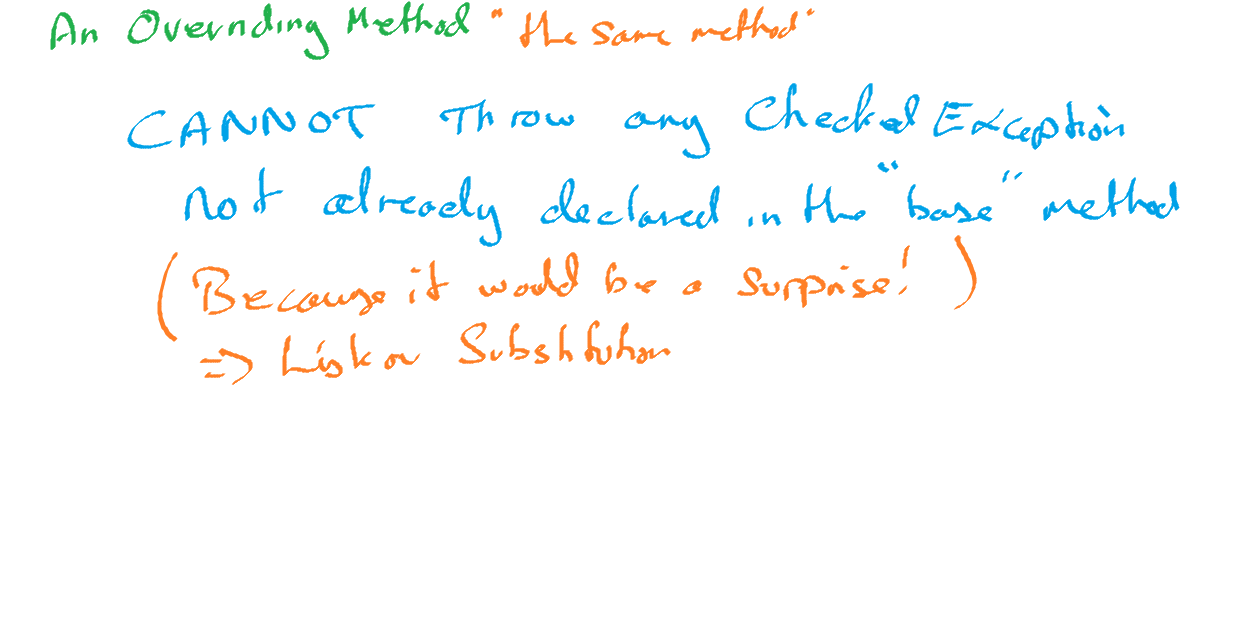 An Overriding Method "the same method"
CANNOT Throw any Checked Exception
not already declared in the "base" method
(Because it would be a surprise!)
=> Liskov Substitution